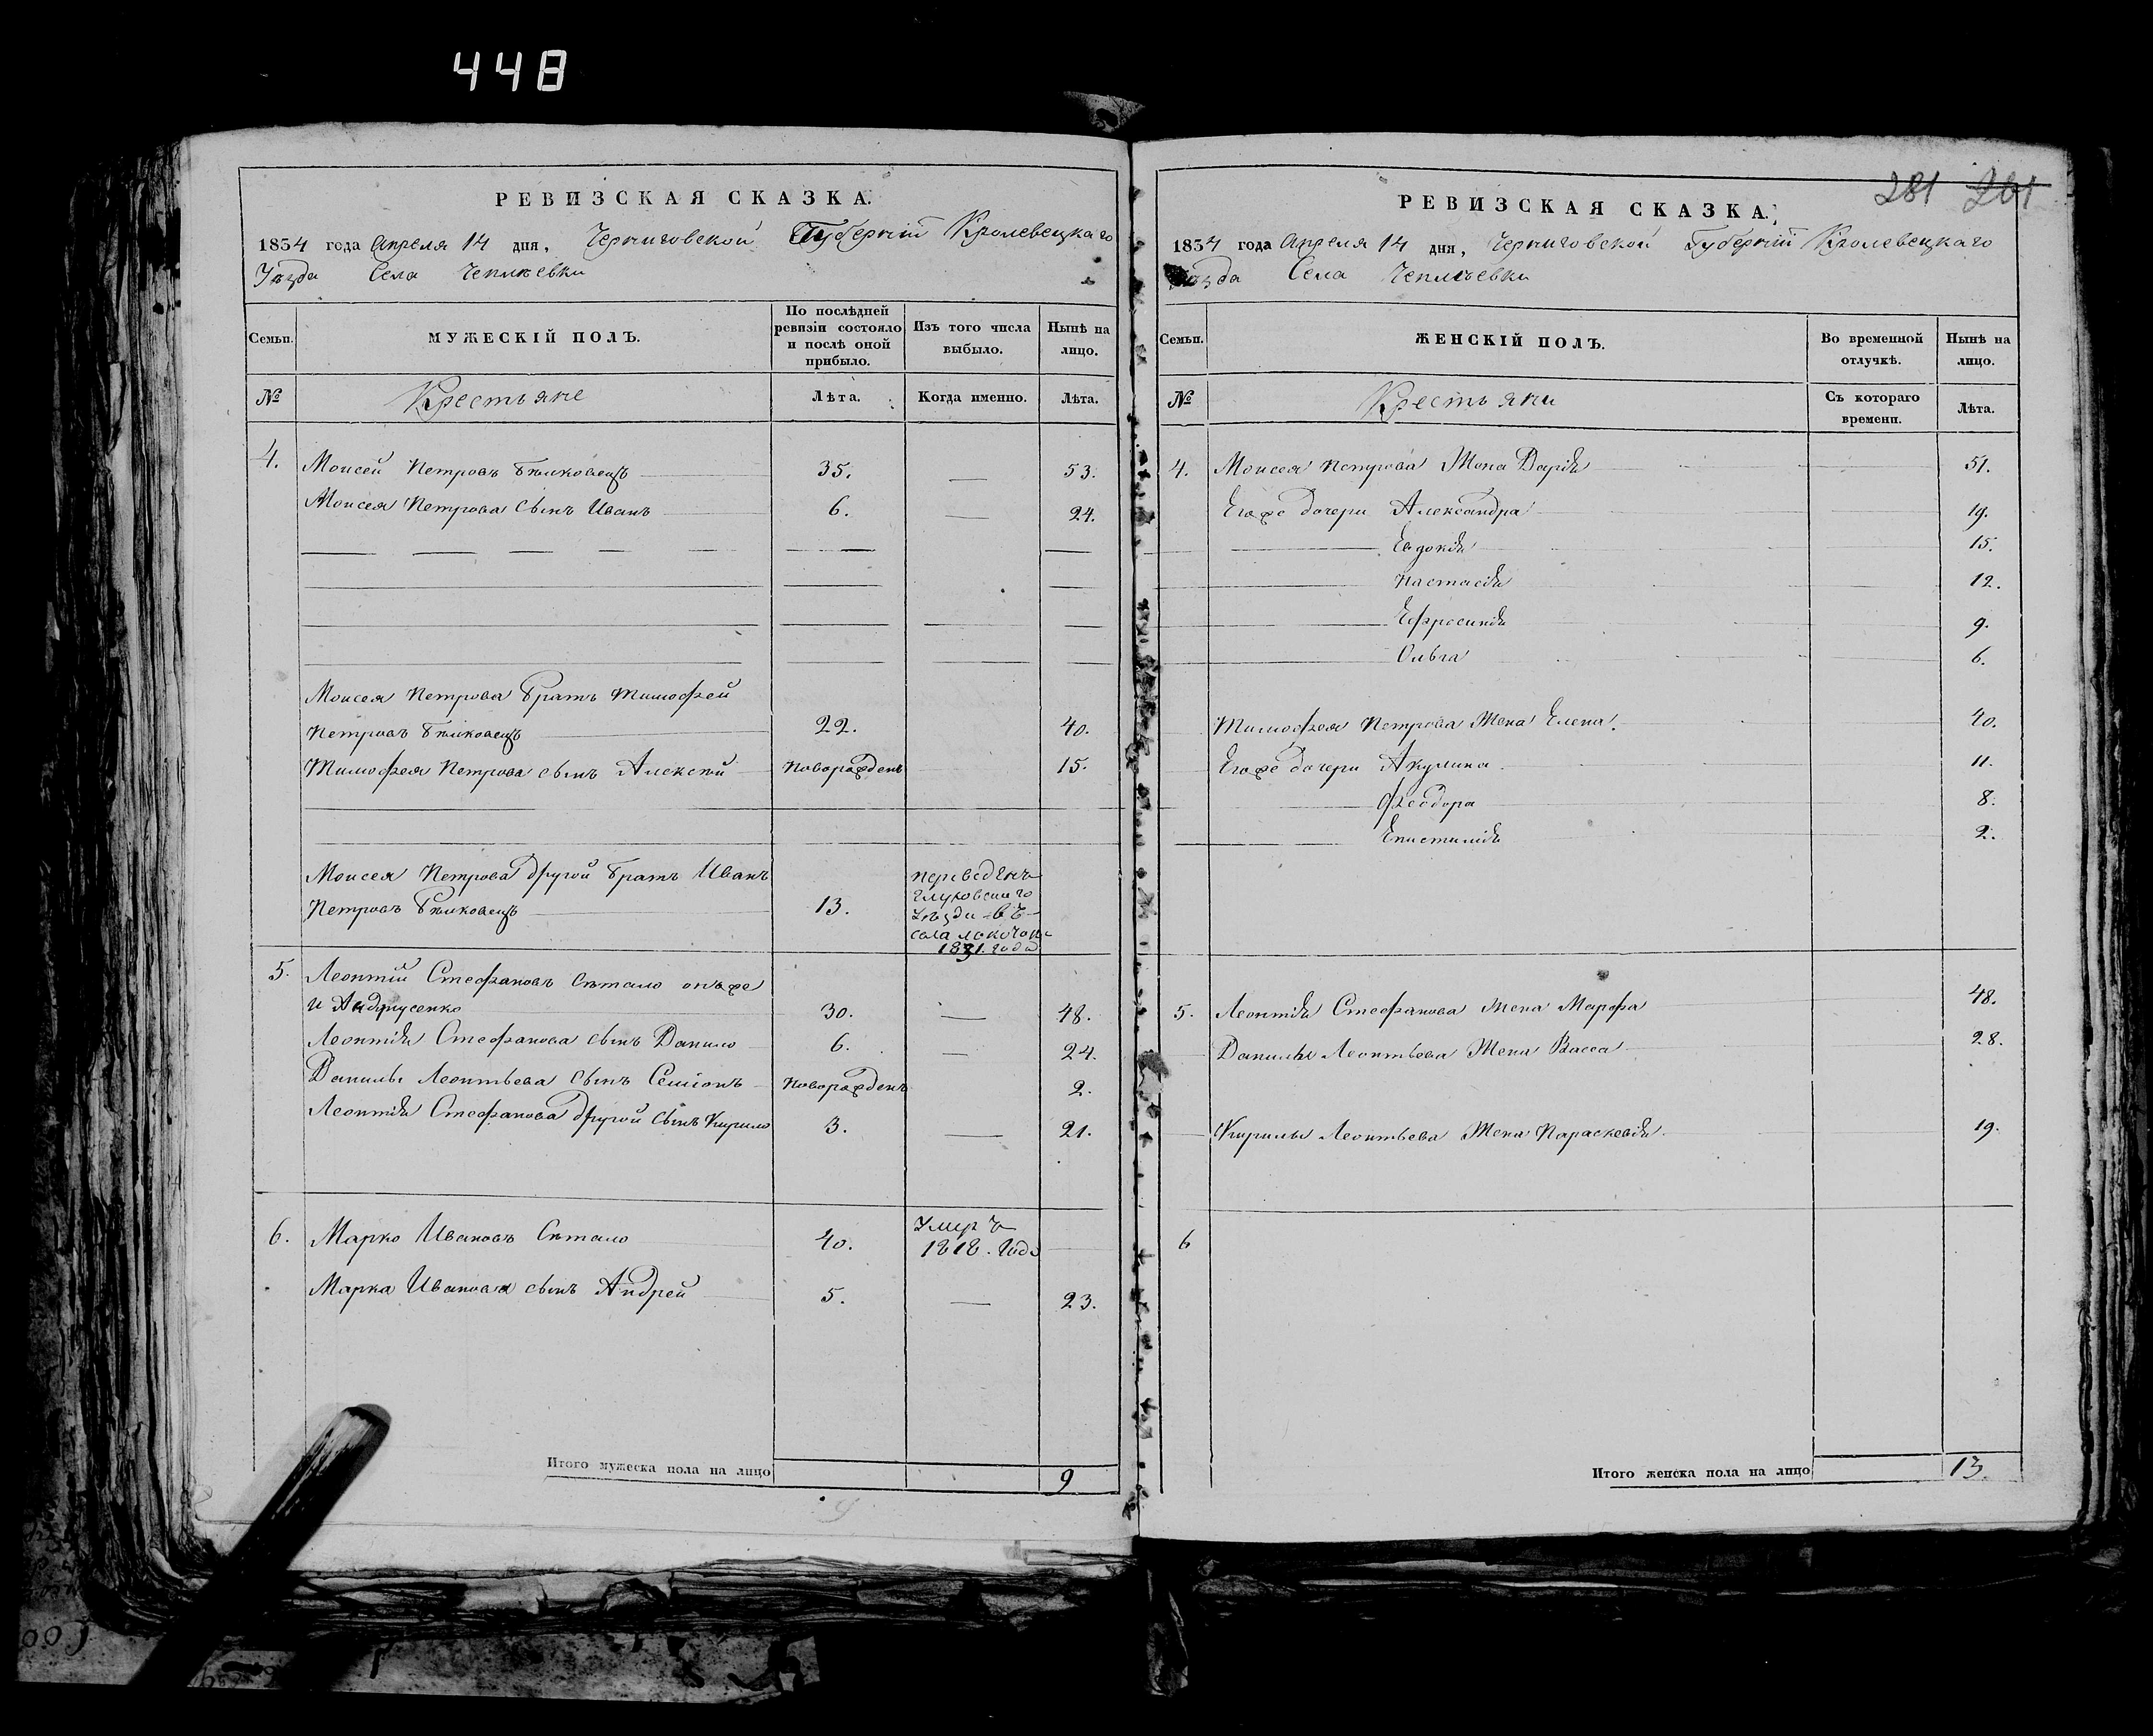 448
РЕВИЗСКАЯ СКАЗКА.
1834 года Апреля 14 дня, Черниговской Губерніи Кролевецкаго
Уѣзда Села Чеплѣевки
Семьи.
МУЖЕСКІЙ ПОЛЪ.
По послѣдней ревизіи состояло и послѣ оной прибыло.
Изъ того числа выбыло.
Нынѣ на лицо.
№
Крестьяне
Лѣта.
Когда именно.
Лѣта.
4. Моисей Петровъ 35. 53.
Моисея Петрова сынъ Иванъ 6. 24.
Моисея Петрова Братъ Тимофей
Петровъ 22. 40.
Тимофея Петрова сынъ Алексѣй Новорожденъ 15.
Моисея Петрова другой Братъ Иванъ
Петровъ 13.
переведенъ
Глуховскаго
Уѣзда въ
села
1831. года
5. Леонтій Стефановъ Ситало онъ же
и Андрусенко 30. 48.
Леонтія Стефанова сынъ Данило 6. 24.
Данилы Леонтьева сынъ Семіонъ Новорожденъ 2.
Леонтія Стефанова другой сынъ Кирило 3. 21.
6. Марко Ивановъ Ситало 40.
Умеръ
1818. Года
Марка Иванова сынъ Андрей 5. 23.
Итого мужеска пола на лицо 9
281 261
РЕВИЗСКАЯ СКАЗКА.
1834 года Апреля 14 дня, Черниговской Губерніи Кролевецкаго
Уѣзда Села Чеплѣевки
Семьи.
ЖЕНСКІЙ ПОЛЪ.
Во временной отлучкѣ.
Нынѣ на лицо.
№
Крестьяни
Съ котораго времени.
Лѣта.
4. Моисея Петрова Жена Дарія 51.
Егоже дочери Александра 19.
Евдокія 15.
Настасія 12.
Ефросинія 9.
Ольга 6.
Тимофея Петрова Жена Елена. 40.
Егоже дочери Акулина 11.
Феодора 8.
Епистимія 2.
5. Леонтія Стефанова Жена Марфа 48.
Данилы Леонтьева Жена Васса 28.
Кирилы Леонтьева Жена Параскевія 19.
6
Итого женска пола на лицо 13.